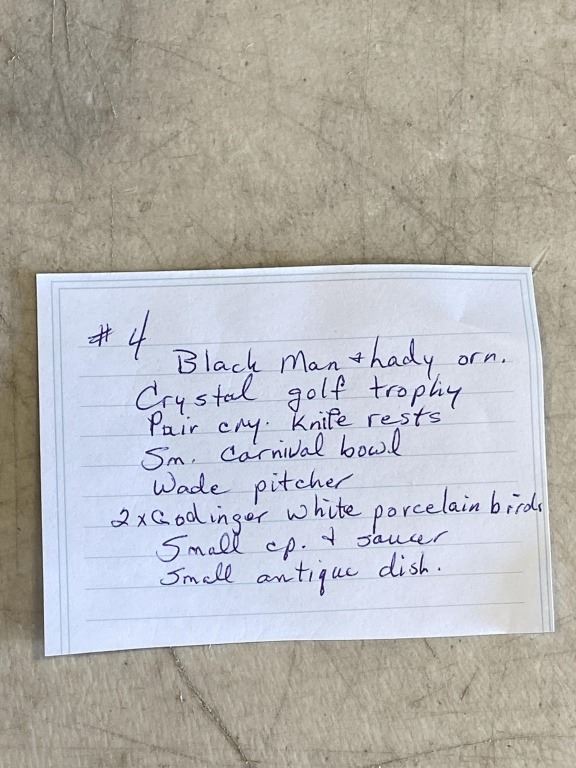 # 4
Black Man + hady orn.
Crystal golf trophy
Pair cry. Knife rests
Sm. Carnival bowl
Wade pitcher
2x Godinger white porcelain birds
Small cp. + saucer
Small antique dish.